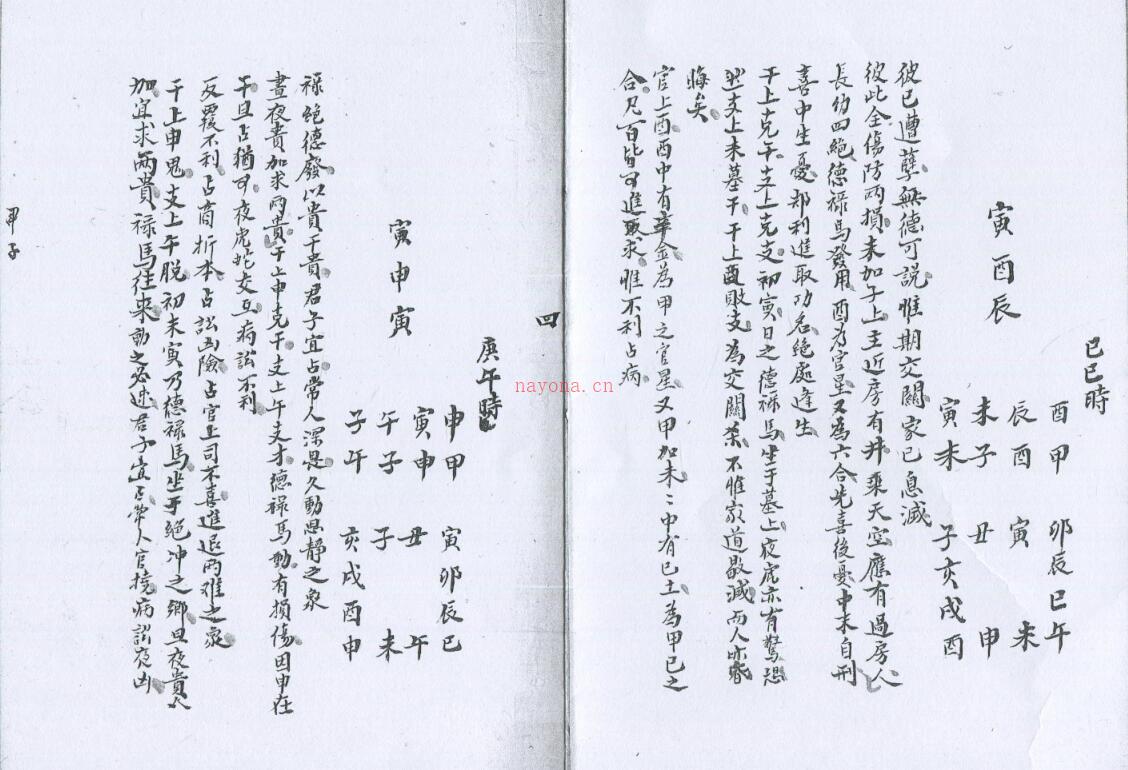 己巳時
酉甲 卯辰巳午
辰酉 寅 未
未子 丑 申
寅未 子亥戌酉
寅酉辰
彼己遭孽無德可說惟期交關家已息滅
彼此全傷防兩損未加子上主近房有井乘天空應有過房人
長伤四絕德祿馬發用酉為官星又為六合先喜後憂中末自刑
喜中生憂却利進取功名絕處逢生
干上克干支上克支初寅日之德祿馬坐于墓上夜虎亦有驚恐
支上未墓干干上酉敗支為交關不惟家道衰減而人亦
悔矣
官上酉酉中有辛金為甲之官星又甲加未二中有巳土為甲巳之
合凡百皆可進取求惟不利占病
四
庚午時
申甲 寅卯辰巳
寅申 丑 午
午子 子 未
子午 亥戌酉申
寅申寅
祿絕德廢以貴干貴君子宜占常人深畏久動思靜之象
晝夜貴加求兩貴干上申克干支上午支才德祿馬動有損傷因申在
午旦占猶可夜虎蛇交互病訟不利
反覆不利占商折本占訟凶險占官上司不喜進退兩難之象
干上申鬼支上午脫初末寅乃德祿馬坐于絕冲之鄉旦夜貴人
加宜求兩貴祿馬往來動之必速君子宜占常人官病訟夜凶
甲子
nayona.cn